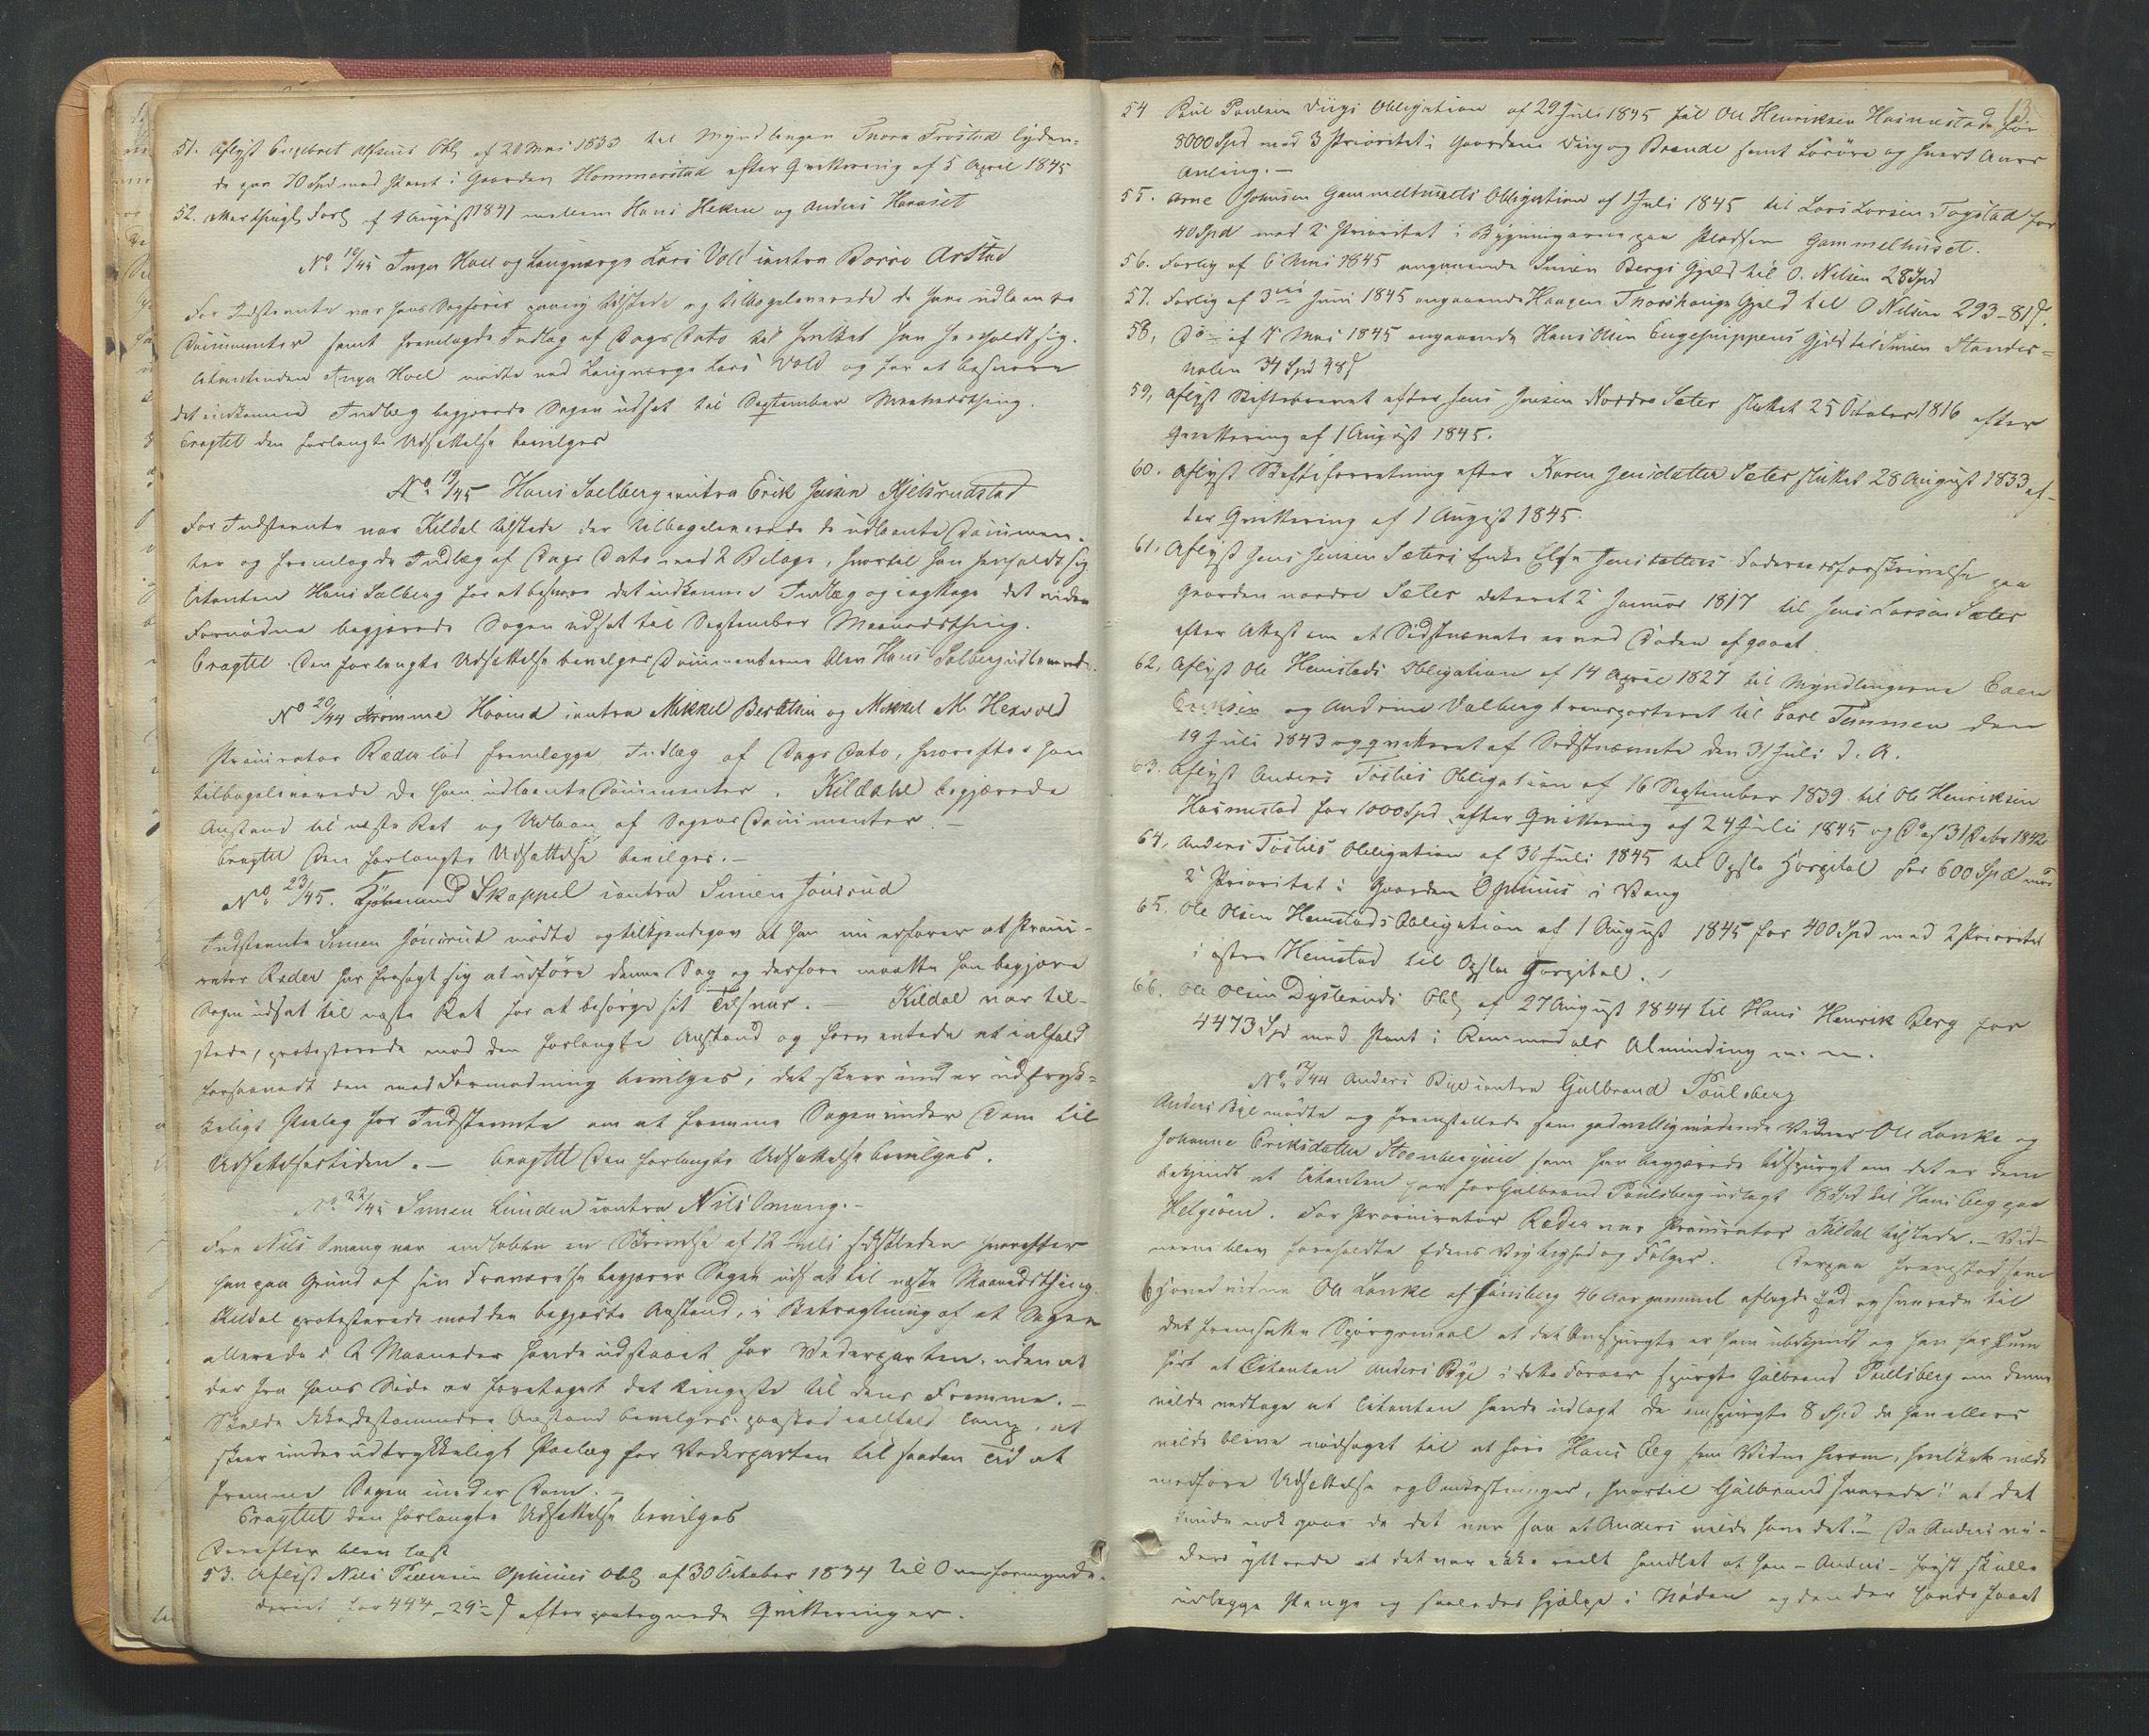 51. Aflyst Engebret Obl af 20 Mai 1833 til Myndlingen Thora Frøstad lyden-
de paa 70 Spd med Pant i Gaarden Hommerstad efter Qvittering af 5 April 1845
52. Forlig af 4 August 1841 mellem Hans Hekne og Anders Haraset
No 18/45 Inger Hoel og Laugværge Lars Vold contra Børre Arstad
For Indstevnte var hans Sagfører tilstede og tilbageleverede de ham udlaante
Documenter samt fremlagde Indlæg af Dags Dato til hvilket han henholdt sig.
Citantinden Inger Hoel mødte med Laugværge Lars Vold og for at besvare
det indkomne Indlæg begjerede Sagen udsat til September Maanedsthing.
Eragtet den forlangte Udsættelse bevilges
No 19/45 Hans Soelberg contra Erik Jensen Kjelsrudstad
For Indstevnte var Kildal tilstede der tilbageleverede de udlaante Documen-
ter og fremlagde Indlæg af Dags Dato med 2 Bilage, hvortil han henholdt sig
Citanten Hans Solberg for at besvare det indkomne Indlæg og iagttage det videre
Fornødne begjerede Sagen udsat til September Maanedsthing.
Eragtet Den forlangte Udsættelse bevilges Documenterne blev Hans Solberg udleverede.
No 20/44 Hoømd contra Mikkel Berthelsen og Mikkel M. Hexvold
Procurator Ræder lod fremlægge Indlæg af Dags Dato, hvorefter han
tilbageleverede de ham udlaante Documenter. Kildahl begjærede
Anstand til næste Ret og Udlaan af Sagens Documenter. -
Eragtet Den forlangte Udsættelse bevilges. -
No 23/45. Kjøbmand Skappel contra Simen Jønsrud
Indstevnte Simen Jønsrud mødte og tilkjendegav at han nu erfarer at Procu-
rator Ræder har frasagt sig at udføre denne Sag og derfore maatte han begjære
Sagen udsat til næste Ret for at besørge sit Tilsvar. - Kildal var til-
stede, protesterede mod den forlangte Anstand og formentede at ialfald
forsaavidt den mod Formodning bevilges, det skeer under udtryk-
keligt Paalæg for Indstevnte om at fremme Sagen under Dom til
Udsættelsestiden. - Eragtet Den forlangte Udsættelse bevilges.
No 22/45 Simen Lunden contra Nils Omang. -
Fra Nils Omang var indløben en Skrivelse af 12 Juli sidstleden hvorefter
han paa Grund af sin Fraværelse begjærer Sagen udsat til næste Maanedsthing.
Kildal protesterede mod den begjærte Anstand, i Betragtning af at Sagen
allerede i 2 Maaneder havde udstaaet for Vederparten, uden at
der fra hans Side er foretaget det ringeste til dens Fremme. -
Skulde ikkedestomindre Anstand bevilges, paastod ialfald Comp. at
skeer under udtrykkeligt Paalæg for Vederparten til saadan Tid at
fremme Sagen under Dom. -
Eragtet den forlangte Udsættelse bevilges
Derefter blev læst
53. Aflyst Nils Pedersen Ophuus Obl af 30 October 1834 til Overformynde-
deriet for 444 - 29 ß efter paategnede Qvitteringer.
13.
54 Poul Poulsen Viigs Obligation af 29 Juli 1845 til Ole Henriksen Hasnestad for
8000 Spd med 3 Prioritet i Gaardene Viig og Brende samt Løsøre og hvert Aars
Avling. -
55. Arne Johnsen Gammelhusets Obligation af 1 Juli 1845 til Lars Larsen Togstad for
40 Spd med 2 Prioritet i Bygningerne paa Pladsen Gammelhuset.
56. Forlig af 6 Mai 1845 angaaende Simen Bergs Gjæld til O. Nilsen 28 Spd
57. Forlig af 3die Juni 1845 angaaende Haagen Thorshaugs Gjeld til O Nilsen 293 - 81 ß.
58, Do af 7 Mai 1845 angaaende Hans Olsen Engesnippens Gjeld til Simen Stander-
holen 34 Spd 48 ß
59, Aflyst Skiftebrevet efter Jens Jensen Nordre Sæter sluttet 25 October 1816 efter
Qvittering af 1 August 1845.
60. Aflyst Skifteforretning efter Karen Jensdatter Sæter sluttet 28 August 1833 ef-
ter Qvittering af 1 August 1845.
61, Aflyst Jens Jensen Sæters Enke Else Jensdatters Føderaadsforskrivelse paa
Gaarden nordre Sæter dateret 2 Januar 1817 til Jens Larsen Sæter
efter Attest om at Sidstnævnte er ved Døden afgaaet.
62, Aflyst Ole Hemstads Obligation af 14 April 1827 til Myndlingerne Even
Eriksen og Andrine Valberg transporteret til Carl Temmen den
19 Juli 1843 og qvitteret af Sidstnævnte den 31 Juli d. A.
63. Aflyst Anders Tøsties Obligation af 16 September 1839 til Ole Henriksen
Hasnestad for 1000 Spd, efter Qvittering af 24 Juli 1845 og Do af 31 Debr 1842
64, Anders Tøsties Obligation af 30 Juli 1845 til Opslo Hospital for 600 Spd med
2 Prioritet i Gaarden Ophuus i Vang
65, Ole Olsen Hemstads Obligation af 1 August 1845 for 400 Spd med 2 Prioritet
i østre Hemstad til Opslo Hospital.
66. Ole Olsen Dysteruds Obl af 27 August 1844 til Hans Henrik Berg for
4473 Spd med Pant i Rommedals Alminding m. m.
No 12/44 Anders Bye contra Gulbrand Poulsberg
Anders Bye mødte og fremstillede som godvilligmødende Vidner Ole Lanke og
Johanne Eriksdatter Steenbergeie som han begjærede tilspurgt om det er dem
bekjendt at Citanten har for Gulbrand Poulsberg udlagt 8 Spd til Hans Eeg paa
Helgeøen. For Procurator Ræder var Procurator Kildal tilstede. - Vid-
nerne blev foreholdte Edens Vigtighed og Følger. Derpaa fremstod som
6 Hovedvidne Ole Lanke af Furuberg 46 Aar gammel aflagde Eed og svarede til
det fremsatte Spørgsmaal at det Omspurgte er ham ubekjendt og han har kun
hørt at Citanten Anders Bye i dette Foraar spurgte Gulbrand Poulsberg om denne
vilde vedtage at Citanten havde udlagt de omspurgte 8 Spd da han ellers
vilde blive nødsaget til at føre Hans Eeg som Vidne herom, hvilket vilde
medføre Udsættelse og Omkostninger, hvortil Gulbrand svarede: "at det
kunde nok gaae da det var saa at Anders vilde have det." Da Anders vi-
dere yttrede at det var ikke reelt handlet at han - Anders - først skulle
udlægge Penge og saaledes hjælpe i Nøden og den der havde faaet